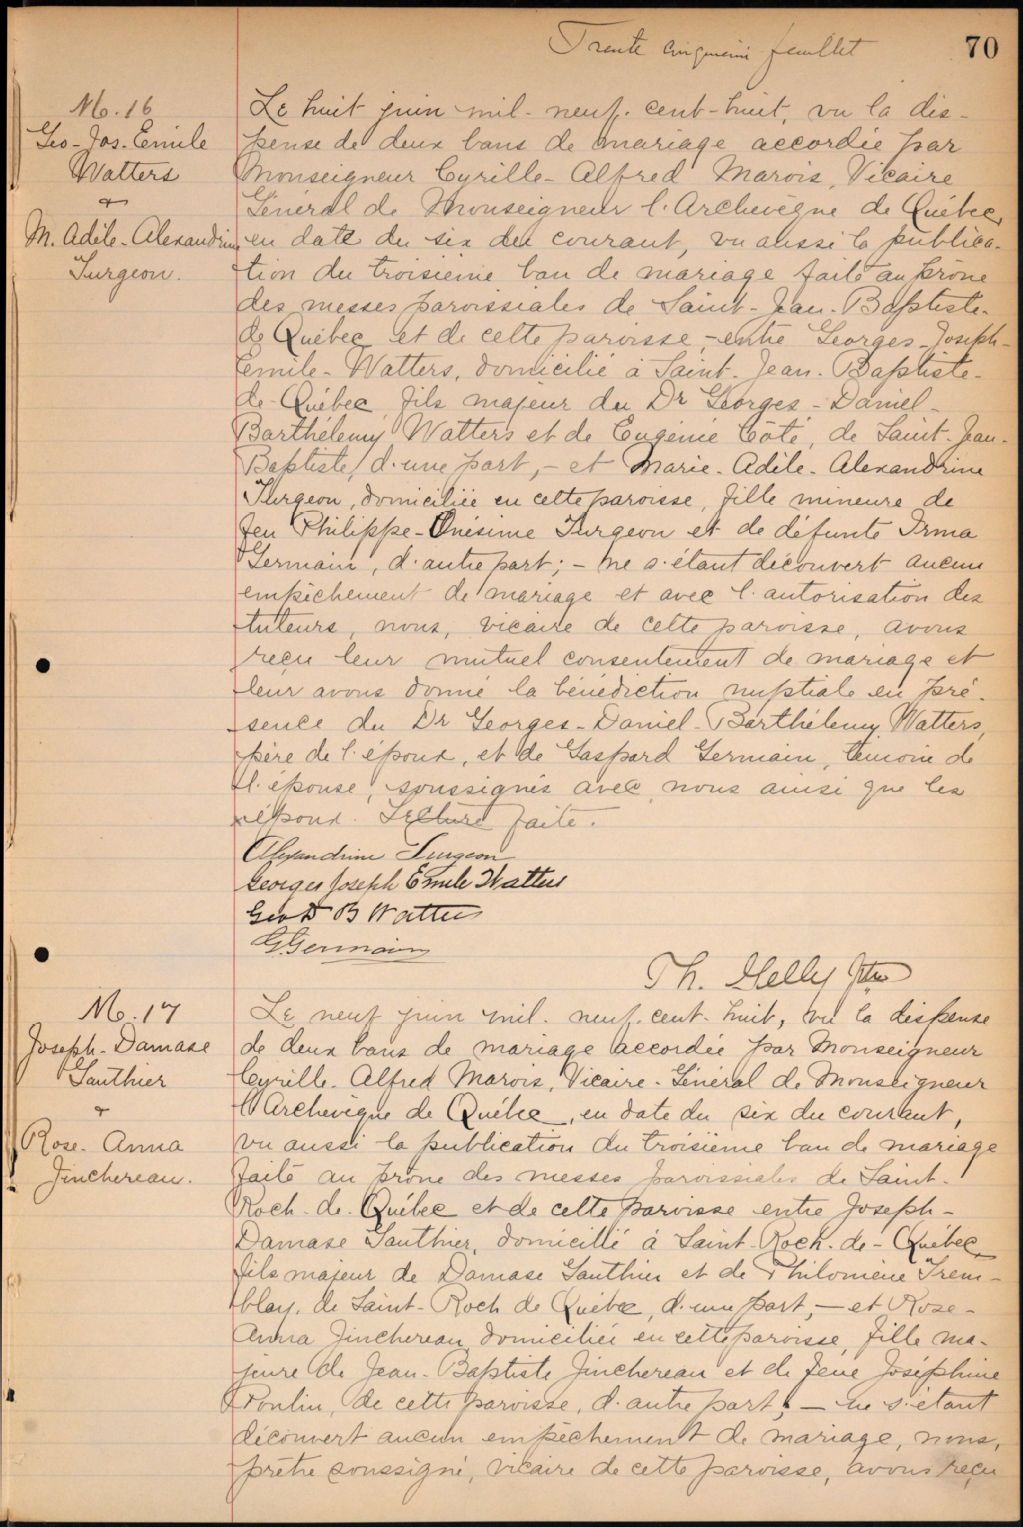 Trente cinquième feuillet
70
M. 16
Geo-Jos-Emile
Watters
&
M. Adèle-Alexandrine
Turgeon.
Le huit juin mil-neuf-cent-huit, vu la dis-
pense de deux bans de mariage accordée par
Monseigneur Cyrille-Alfred Marois, Vicaire
Général de Monseigneur l'Archevêque de Québec,
en date du six du courant, vu aussi la publica-
tion du troisième ban de mariage faite au prône
des messes paroissiales de Saint-Jean-Baptiste-
de Québec et de cette paroisse,-entre Georges-Joseph-
Emile-Watters, domicilié à Saint-Jean-Baptiste-
de-Québec, fils majeur du Dr Georges-Daniel-
Barthélemy Watters et de Eugénie Côté, de Saint-Jean-
Baptiste, d'une part,- et Marie-Adèle-Alexandrine
Turgeon, domiciliée en cette paroisse, fille mineure de
feu Philippe-Onésime Turgeon et de défunte Irma
Germain, d'autre part;- ne s'étant découvert aucun
empêchement de mariage et avec l'autorisation des
tuteurs, nous, vicaire de cette paroisse, avons
reçu leur mutuel consentement de mariage et
leur avons donné la bénédiction nuptiale en pré-
sence du Dr Georges-Daniel-Barthélemy Watters,
père de l'époux, et de Gaspard Germain, témoin de
l'épouse, soussignés avec nous ainsi que les
époux. Lecture faite.
Alexandrine Turgeon
Georges Joseph Emile Watters
Geo D B Watters
G. Germain
Th. Gelly Ptre
M. 17
Joseph-Damase
Gauthier
&
Rose-Anna
Jinchereau.
Le neuf juin mil-neuf-cent-huit, vu la dispense
de deux bans de mariage accordée par Monseigneur
Cyrille-Alfred Marois, Vicaire-Général de Monseigneur
l'Archevêque de Québec, en date du six du courant,
vu aussi la publication du troisième ban de mariage
faite au prône des messes paroissiales de Saint-
Roch-de-Québec et de cette paroisse entre Joseph-
Damase Gauthier, domicilié à Saint-Roch-de-Québec,
fils majeur de Damase Gauthier et de Philomène Trem-
blay, de Saint-Roch de Québec, d'une part,- et Rose-
Anna Jinchereau, domiciliée en cette paroisse, fille ma-
jeure de Jean-Baptiste Jinchereau et de feue Joséphine
Poulin, de cette paroisse, d'autre part;- ne s'étant
découvert aucun empêchement de mariage, nous,
prêtre soussigné, vicaire de cette paroisse, avons reçu